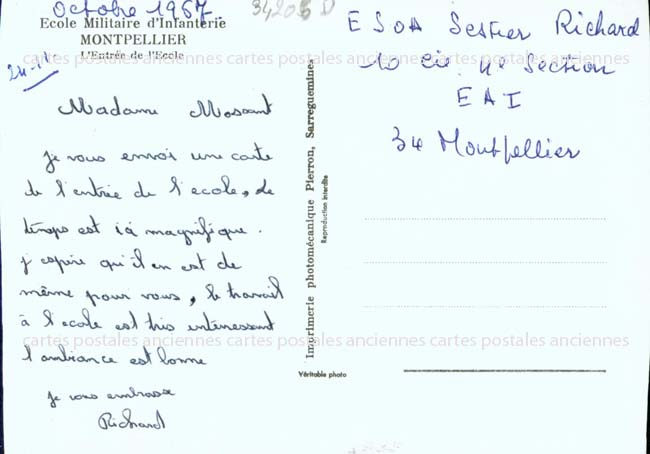 Octobre 1967.
34205 D
Ecole Militaire d'Infanterie
MONTPELLIER
L'Entrée de l'Ecole
Madame Mossant
je vous envoi une carte
de l'entrée de l'ecole, le
temps est ici magnifique.
j espire qu'il en est de
même pour vous, le travail
à l'ecole est tris intéressant
l'ambiance est bonne
je vous embrasse
Richard
Imprimerie photomécanique Pierron, Sarreguemines
Reproduction interdite
Véritable photo
ESOA Sestier Richard
10 Cie 4e Section
EAI
34 Montpellier
cartes postales anciennes cartes postales anciennes cartes postales anciennes
cartes postales anciennes cartes postales anciennes cartes postales anciennes